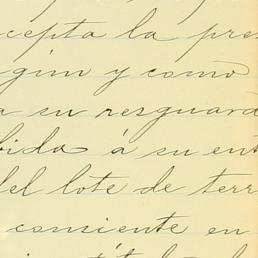 cepta la pre
gim y como
a su resguard
bida á su ent
del lote de terr
consiente en